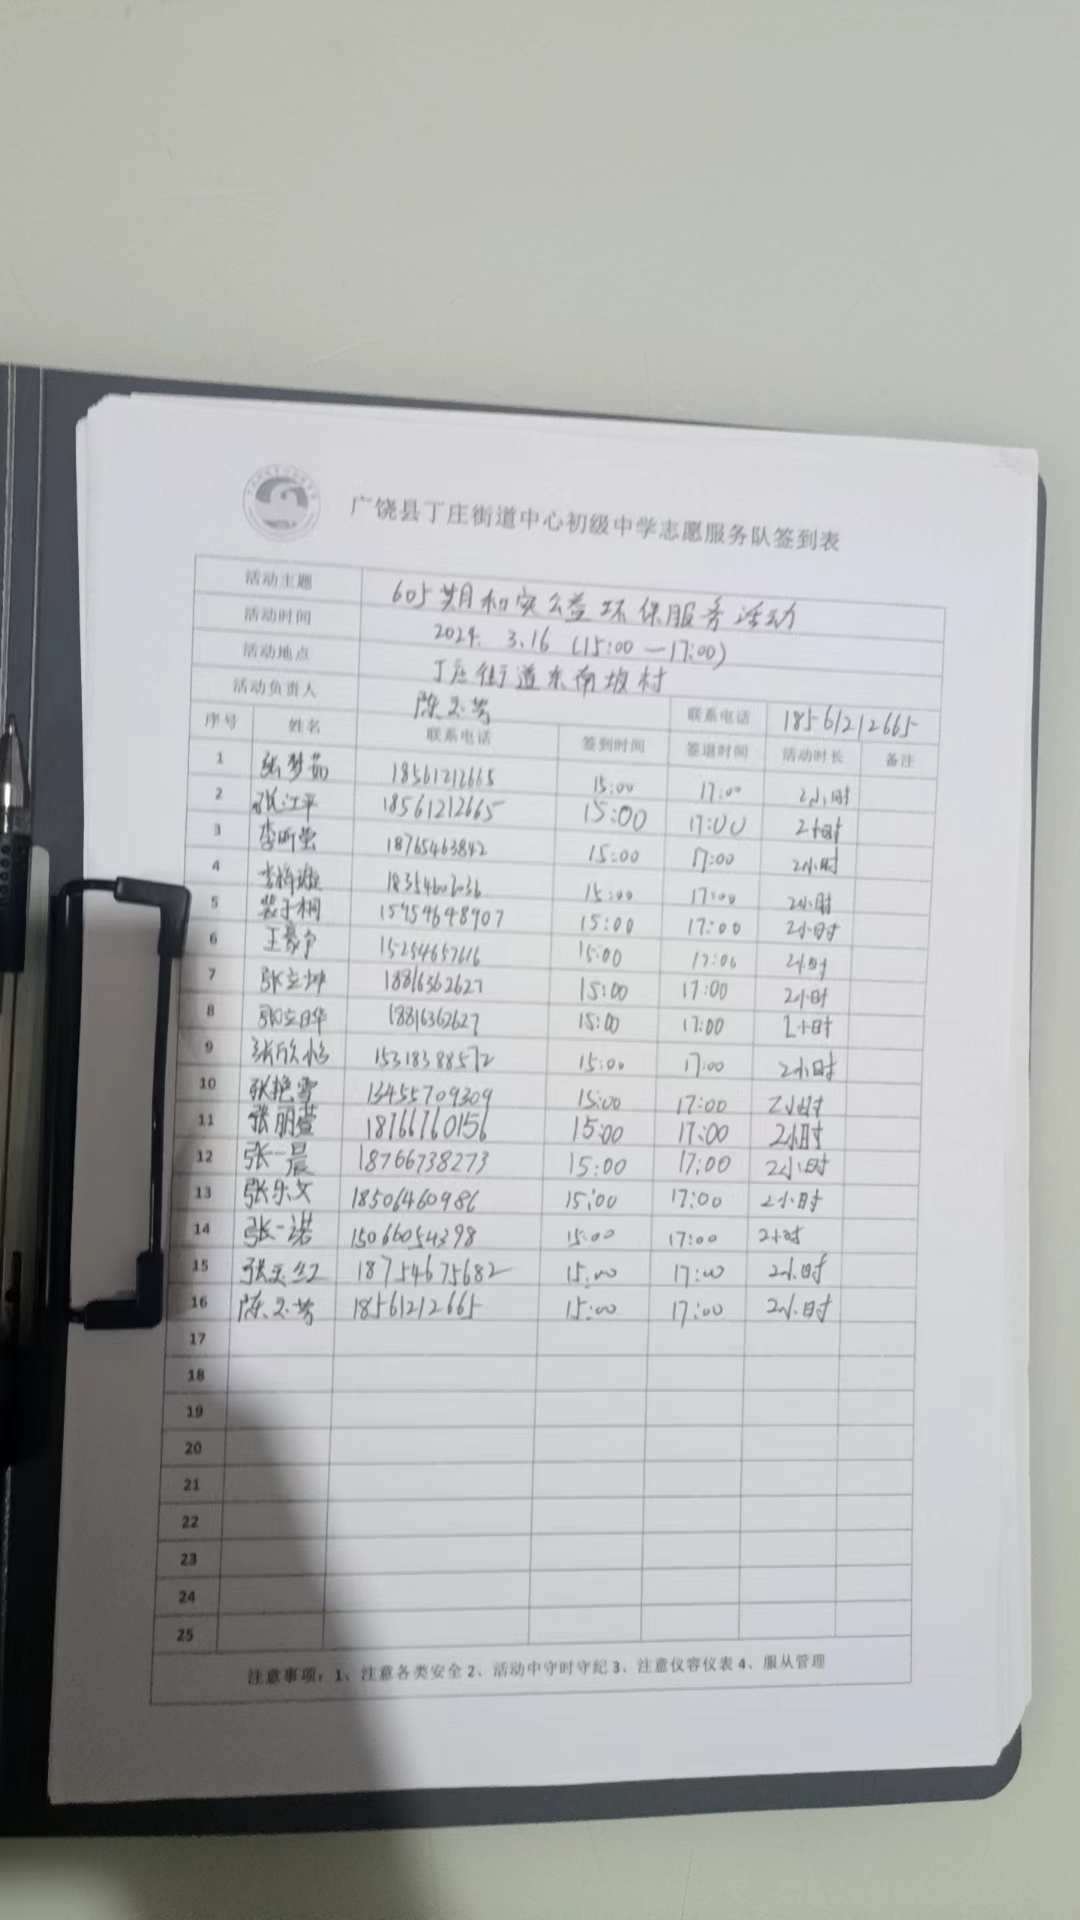 广饶县丁庄街道中心初级中学志愿服务队签到表
活动主题 605期和实公益环保服务活动
活动时间 2024. 3.16 (15:00—17:00)
活动地点 丁庄街道东南坡村
活动负责人 陈玉芳 联系电话 18561212665
序号 姓名 联系电话 签到时间 签退时间 活动时长 备注
1 张梦茹 18561212665 15:00 17:00 2小时
2 张江平 18561212665 15:00 17:00 2小时
3 李昕莹 18765463842 15:00 17:00 2小时
4 15:00 17:00 2小时
5 裴子桐 15:00 17:00 2小时
6 15254657616 15:00 17:00 2小时
7 张立坤 18816362627 15:00 17:00 2小时
8 张立晔 18816362627 15:00 17:00 2小时
9 15318388572 15:00 17:00 2小时
10 张艳雪 13455709309 15:00 17:00 2小时
11 张丽萱 18766760156 15:00 17:00 2小时
12 张一晨 18766738273 15:00 17:00 2小时
13 张乐文 18506460986 15:00 17:00 2小时
14 张一诺 15066054398 15:00 17:00 2小时
15 张玉红 18754675682 15:00 17:00 2小时
16 陈玉芳 18561212665 15:00 17:00 2小时
17
18
19
20
21
22
23
24
25
注意事项：1、注意各类安全 2、活动中守时守纪 3、注意仪容仪表 4、服从管理